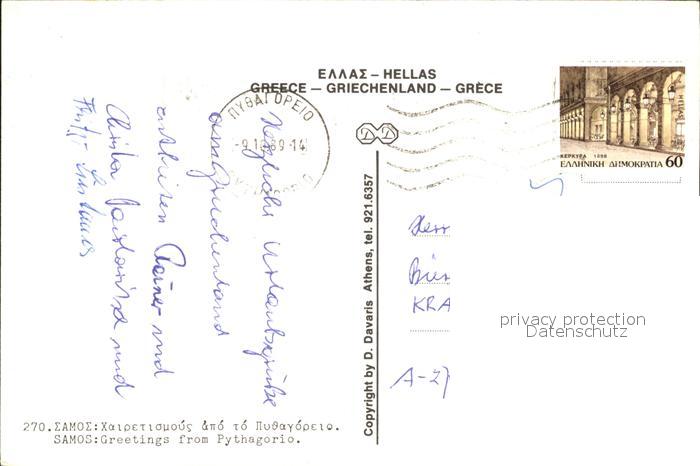 ΕΛΛΑΣ – HELLAS
GREECE – GRIECHENLAND – GRÈCE
ΠΥΘΑΓΟΡΕΙΟ
ΚΕΡΚΥΡΑ 1898
ΕΛΛΗΝΙΚΗ ΔΗΜΟΚΡΑΤΙΑ 60
Herzliche Urlaubsgrüße
aus Griechenland
entbieten Rainer und
Christa und
Copyright by D. Davaris Athens, tel. 921.6357
Herr
KRA
privacy protection
Datenschutz
A-27
270.ΣΑΜΟΣ:Χαιρετισμούς ἀπό τό Πυθαγόρειο.
SAMOS:Greetings from Pythagorio.